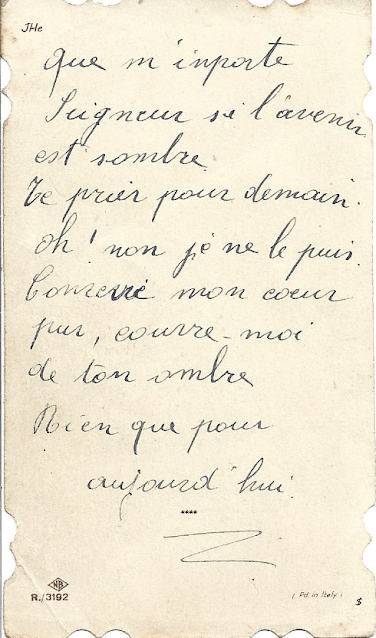 JHe
que m'inporte
Seigneur si l'avenir
est sombre
Te prier pour demain.
oh! non je ne le puis.
Conserve mon coeur
pur, couvre-moi
de ton ombre
Rien que pour
aujourd'hui.
****
NB
R./3192
Pd. in Italy
$